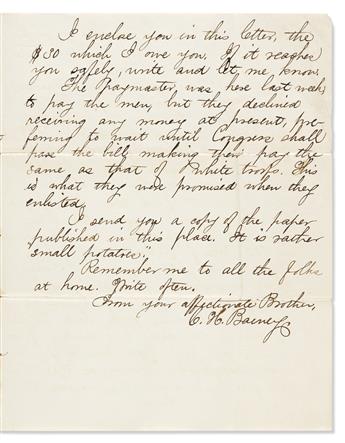 I enclose you in this letter, the
$30 which I owe you. If it reaches
you safely, write and let me know.
The Paymaster was here last week
to pay the men, but they declined
receiving any money at present, pre-
ferring to wait until Congress shall
pass the bill, making their pay the
same, as that of white troops. This
is what they were promised when they
enlisted.
I send you a copy of the paper
published in this place. It is rather
"small potatoes".
Remember me to all the folks
at home. Write often.
From your affectionate Brother,
C. H. Barney